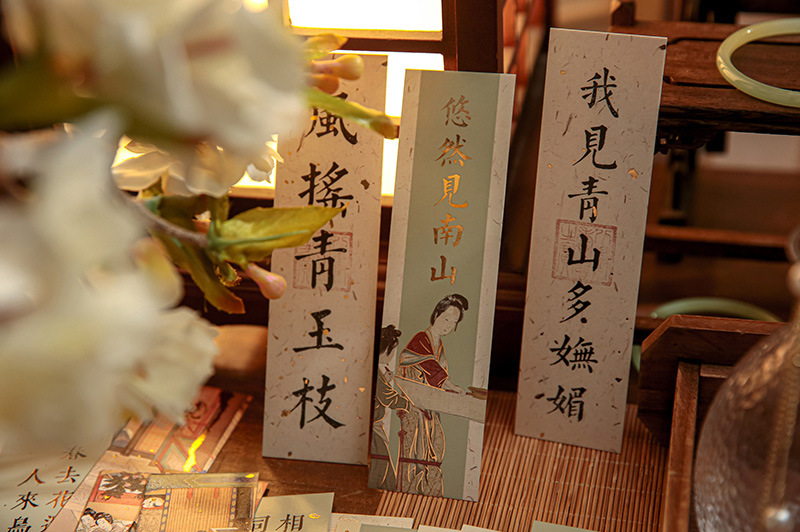 風搖青玉枝
悠然見南山
我見青山多嫵媚
春去花還
人來鳥
相
同